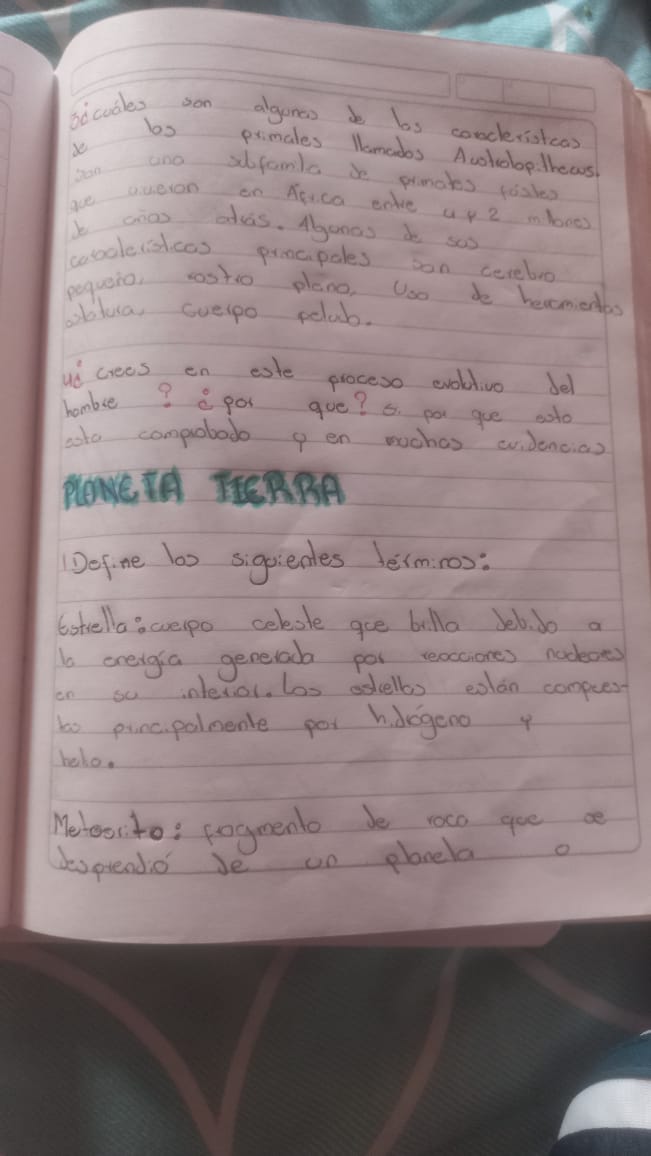 3¿cuáles son algunas de las características
de los primates llamados Australopithecus.
son una subfamila de primates fósiles
que vivieron en África entre 4 y 2 millones
de años atrás. Algunas de sus
características principales son cerebro
pequeño, rostro plano, Uso de herramientas
estatura, cuerpo peludo.
4¿ crees en este proceso evolutivo del
hombre ? ¿ por que? si por que esto
esta comprobado y en muchas evidencias
PLANETA TIERRA
1 Define los siguientes términos:
Estrella: cuerpo celeste que brilla debido a
la energía generada por reacciones nucleares
en su interior. Las estrellas están compues-
tas principalmente por hidrógeno y
helio.
Meteorito: fragmento de roca que se
desprendió de un planeta o